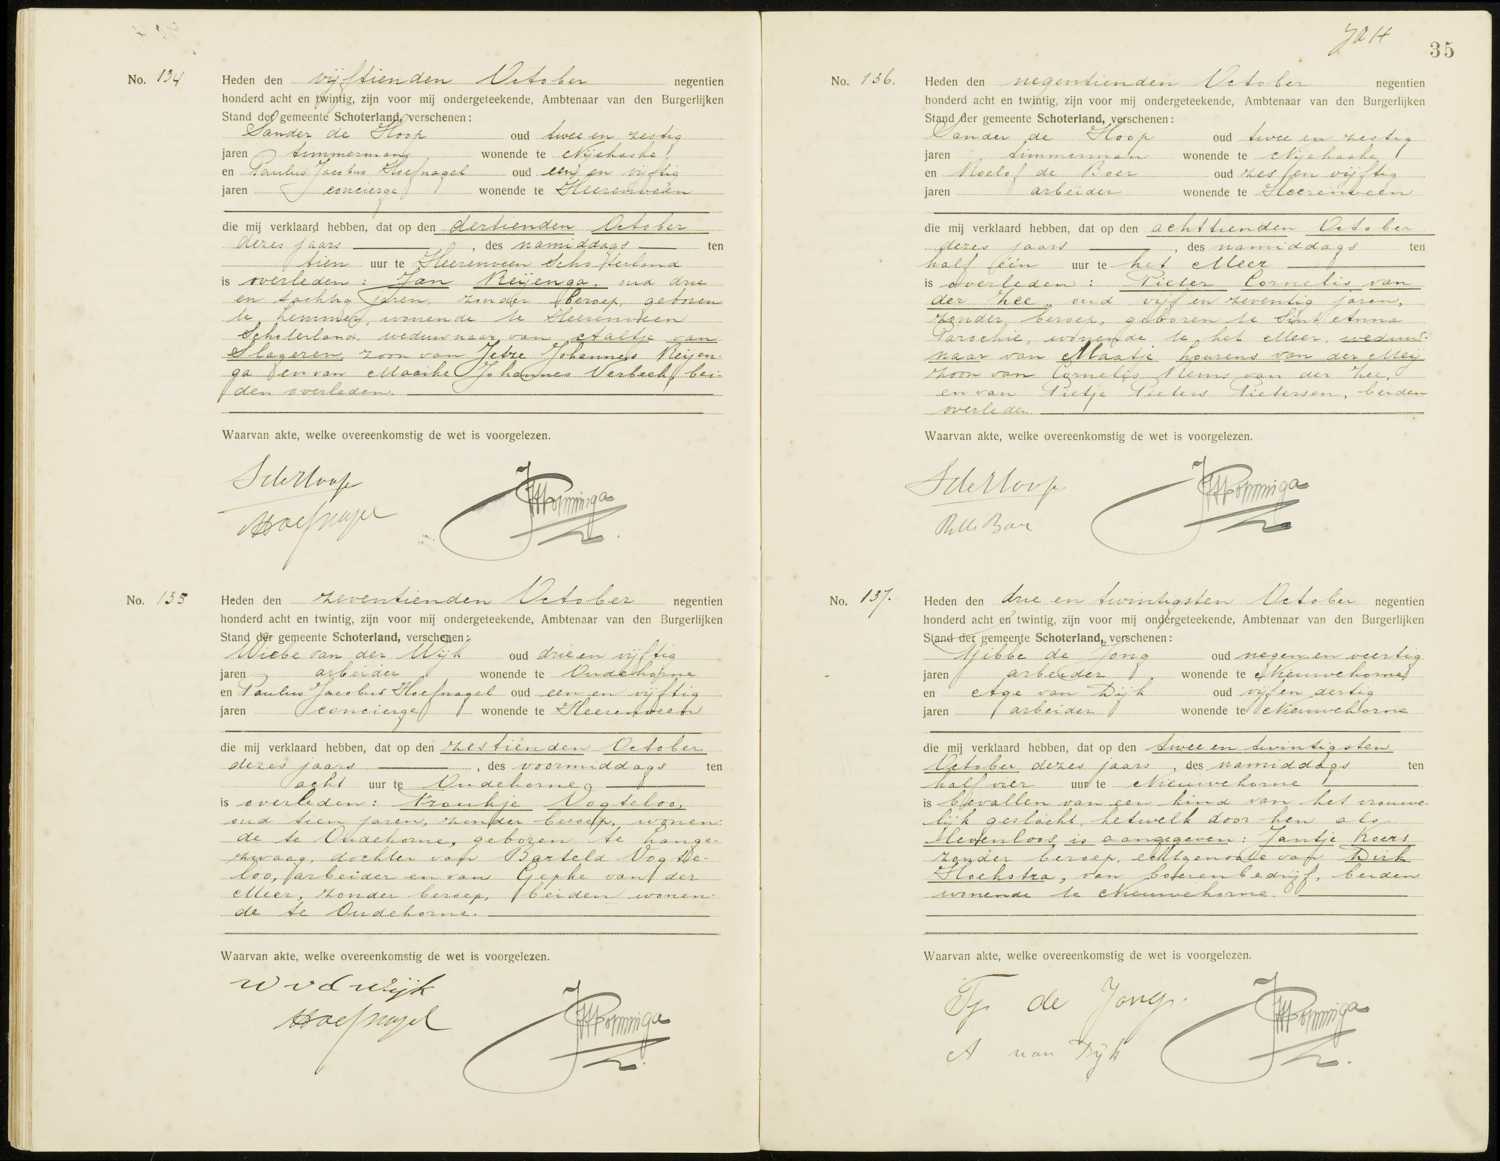 No. 134 Heden den vijftienden October negentien
honderd acht en twintig, zijn voor mij ondergeteekende, Ambtenaar van den Burgerlijken
Stand der gemeente Schoterland, verschenen:
Sander de Hoop oud twee en zestig
jaren timmerman wonende te Nijehaske
en Paulus Jacobus Hoefnagel oud een en vijftig
jaren concierge wonende te Heerenveen
die mij verklaard hebben, dat op den dertienden October
dezes jaars , des namiddags ten
tien uur te Heerenveen Schoterland
is overleden: Jan Reijenga, oud drie
en tachtig jaren, zonder beroep, geboren
te Lemmer, wonende te Heerenveen
Schoterland, weduwnaar van Aaltje van
Slageren, zoon van Jetze Johannes Reijen-
ga en van Maaike Johannes Verbeek, bei-
den overleden.
Waarvan akte, welke overeenkomstig de wet is voorgelezen.
S de Hoop
Hoefnagel
No. 135 Heden den zeventienden October negentien
honderd acht en twintig, zijn voor mij ondergeteekende, Ambtenaar van den Burgerlijken
Stand der gemeente Schoterland, verschenen:
Wiebe van der Wijk oud drie en vijftig
jaren arbeider wonende te Oudehorne
en Paulus Jacobus Hoefnagel oud een en vijftig
jaren concierge wonende te Heerenveen
die mij verklaard hebben, dat op den zestienden October
dezes jaars , des voormiddags ten
acht uur te Oudehorne
is overleden: Froukje Vogteloo,
oud tien jaren, zonder beroep, wonen-
de te Oudehorne, geboren te Lange-
zwaag, dochter van Barteld Vogte-
loo, arbeider en van Gepke van der
Meer, zonder beroep, beiden wonen-
de te Oudehorne.
Waarvan akte, welke overeenkomstig de wet is voorgelezen.
W v d Wijk
Hoefnagel
35
No. 136. Heden den negentienden October negentien
honderd acht en twintig, zijn voor mij ondergeteekende, Ambtenaar van den Burgerlijken
Stand der gemeente Schoterland, verschenen:
Sander de Hoop oud twee en zestig
jaren timmerman wonende te Nijehaske
en Roelof de Boer oud zes en vijftig
jaren arbeider wonende te Heerenveen
die mij verklaard hebben, dat op den achttienden October
dezes jaars , des namiddags ten
half één uur te het Meer
is overleden: Pieter Cornelis van
der Zee, oud vijf en zeventig jaren,
zonder beroep, geboren te Sint Anna
Parochie, wonende te het Meer, weduw-
naar van Maatje Lourens van der Meij
zoon van Cornelis Rems van der Zee,
en van Pietje Pieters Pietersen, beiden
overleden.
Waarvan akte, welke overeenkomstig de wet is voorgelezen.
S de Hoop
No. 137. Heden den drie en twintigsten October negentien
honderd acht en twintig, zijn voor mij ondergeteekende, Ambtenaar van den Burgerlijken
Stand der gemeente Schoterland, verschenen:
Tjibbe de Jong oud negen en veertig
jaren arbeider wonende te Nieuwehorne
en Age van Dijk oud vijf en dertig
jaren arbeider wonende te Nieuwehorne
die mij verklaard hebben, dat op den twee en twintigsten
October dezes jaars , des namiddags ten
half vier uur te Nieuwehorne
is bevallen van een kind van het vrouwe-
lijk geslacht, hetwelk door hen als
levenloos is aangegeven: Jantje Koers
zonder beroep, echtgenoote van Dirk
Hoekstra, van boerenbedrijf, beiden
wonende te Nieuwehorne.
Waarvan akte, welke overeenkomstig de wet is voorgelezen.
Tj. de Jong.
A van Dijk